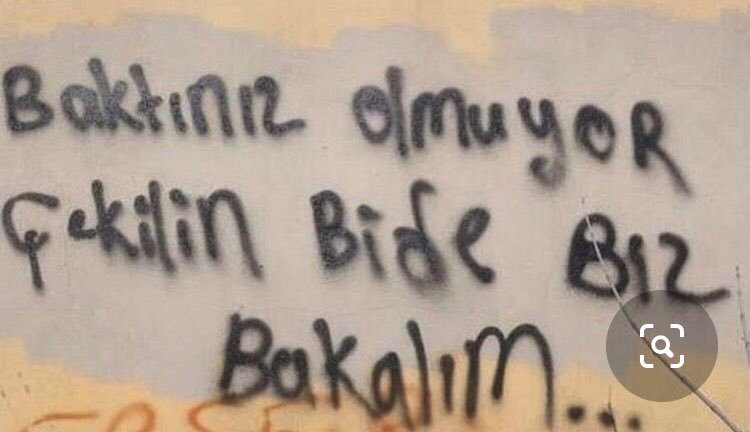 Baktınız olmuyoR
Çekilin Bide Biz
Bakalım...